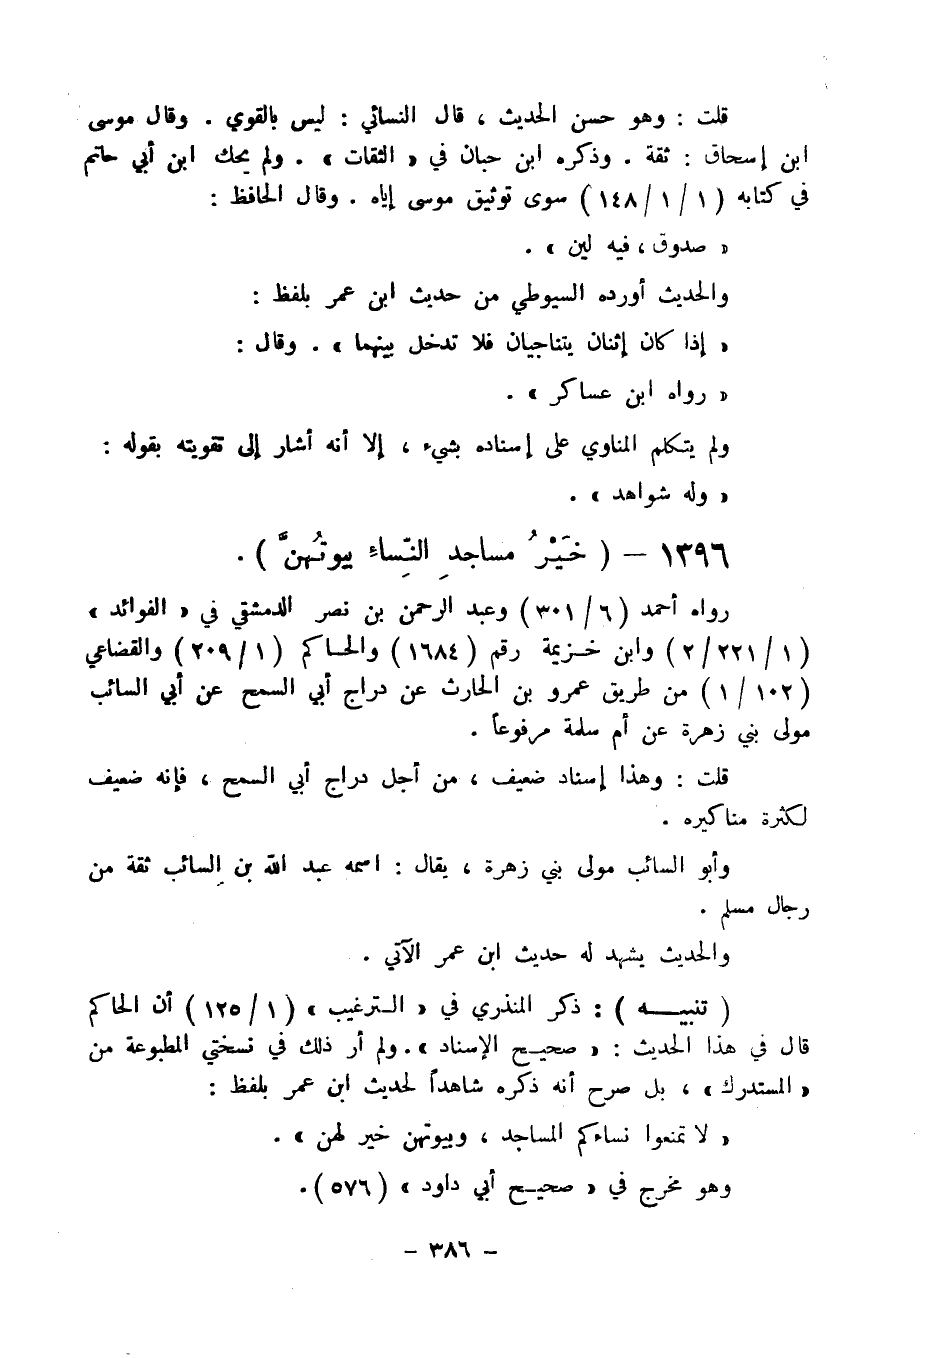 قلت : وهو حسن الحديث ، قال النسائي : ليس بالقوي . وقال موسى
ابن إسحاق : ثقة . وذكره ابن حبان في « الثقات » . ولم يحك ابن أبي حاتم
في كتابه (١/ ١/ ١٤٨) سوى توثيق موسى إياه . وقال الحافظ :
« صدوق ، فيه لين » .
والحديث أورده السيوطي من حديث ابن عمر بلفظ :
« إذا كان إثنان يتناجيان فلا تدخل بينهما » . وقال :
« رواه ابن عساكر » .
ولم يتكلم المناوي على إسناده بشيء ، إلا أنه أشار إلى تقويته بقوله :
« وله شواهد » .
١٣٩٦ – ( خَيْرُ مساجدِ النِّساءِ بيوتُهنَّ ) .
رواه أحمد (٦/ ٣٠١) وعبد الرحمن بن نصر الدمشقي في « الفوائد »
(١/ ٢٢١/ ٢) وابن خزيمة رقم (١٦٨٤) والحاكم (١/ ٢٠٩) والقضاعي
(١٠٢/ ١) من طريق عمرو بن الحارث عن دراج أبي السمح عن أبي السائب
مولى بني زهرة عن أم سلمة مرفوعاً .
قلت : وهذا إسناد ضعيف ، من أجل دراج أبي السمح ، فإنه ضعيف
لكثرة مناكيره .
وأبو السائب مولى بني زهرة ، يقال : اسمه عبد الله بن السائب ثقة من
رجال مسلم .
والحديث يشهد له حديث ابن عمر الآتي .
( تنبيه ) : ذكر المنذري في « الترغيب » (١/ ١٢٥) أن الحاكم
قال في هذا الحديث : « صحيح الإسناد » . ولم أر ذلك في نسختي المطبوعة من
« المستدرك » ، بل صرح أنه ذكره شاهداً لحديث ابن عمر بلفظ :
« لا تمنعوا نساءكم المساجد ، وبيوتهن خير لهن » .
وهو مخرج في « صحيح أبي داود » (٥٧٦) .
– ٣٨٦ –